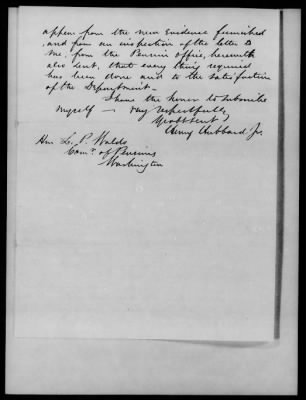 appear from the new Evidence furnished
and from an inspection of the letter to
me, from the Pension office, herewith
also sent, that every thing required
has been done and to the satisfaction
of the Department—
I have the honor to subscribe
myself — very respectfully
Your obt Sert
Henry Hubbard, Jr.
Hon L. P. Waldo
Comr. of Pensions
Washington